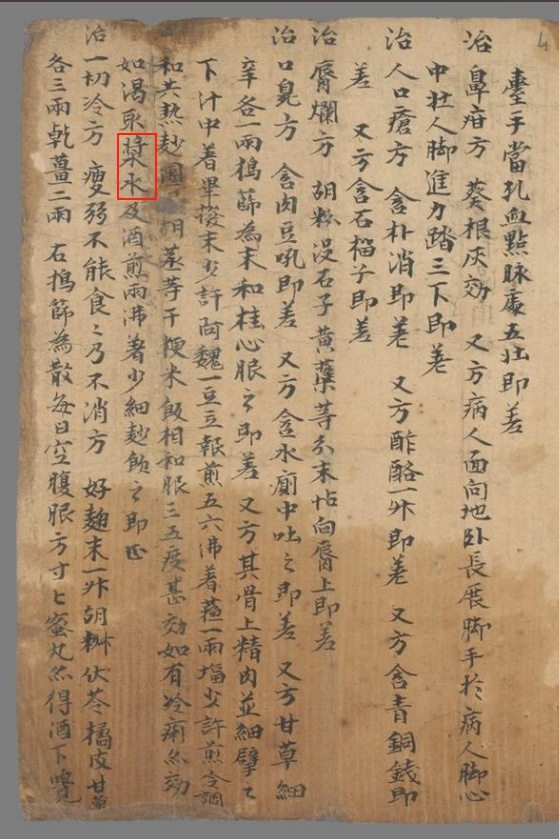 臺手當孔血點脉處五壯即差
治鼻疳方 葵根灰効 又方病人面向地卧長展脚手於病人脚心
中壮人脚進力踏三下即差
治人口瘡方 含朴消即差 又方酢酪一升即差 又方含青銅錢即
差 又方含石榴子即差
治脣爛方 胡粉没石子黄蘗等分末怗向脣上即差
治口臭方 含肉豆吼即差 又方含水廁中吐之即差 又方甘草細
辛各一兩搗篩為末和桂心服之即差 又方其骨上精肉並細擘之
下汁中着畢撥末少許阿魏一豆豆報煎五六沸着䕃一兩塸少許煎令調
和共熱麨胡葱等干粳米飯相和服三五度甚効如有冷痢亦効
如渴取漿水及酒煎兩沸著少細麨飲之即止
治一切冷方 瘦弱不能食之乃不消方 好麹末一升胡椒伏苓橘皮甘草
各三兩乾薑二兩 右搗篩為散每日空腹服方寸匕蜜丸亦得酒下覺